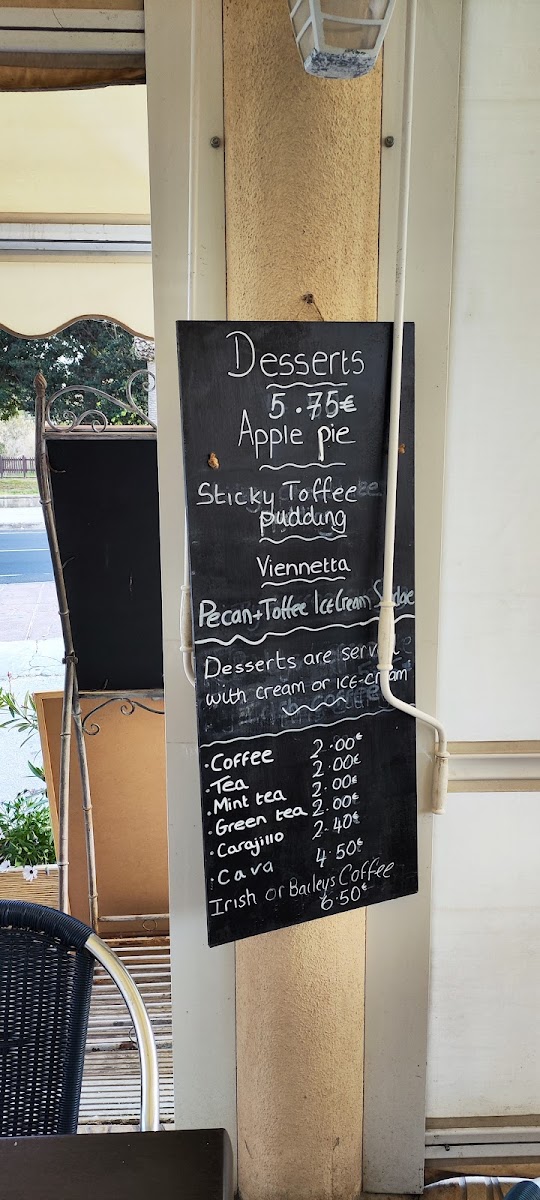 Desserts
5.75€
Apple pie
Sticky Toffee
pudding
Viennetta
Pecan+Toffee Ice Cream
Desserts are
with cream or ICE-cream
·Coffee 2.00€
·Tea 2.00€
·Mint tea 2.00€
·Green tea 2.00€
·Carajillo 2.40€
·Cava 4.50€
Irish or Baileys Coffee
6.50€